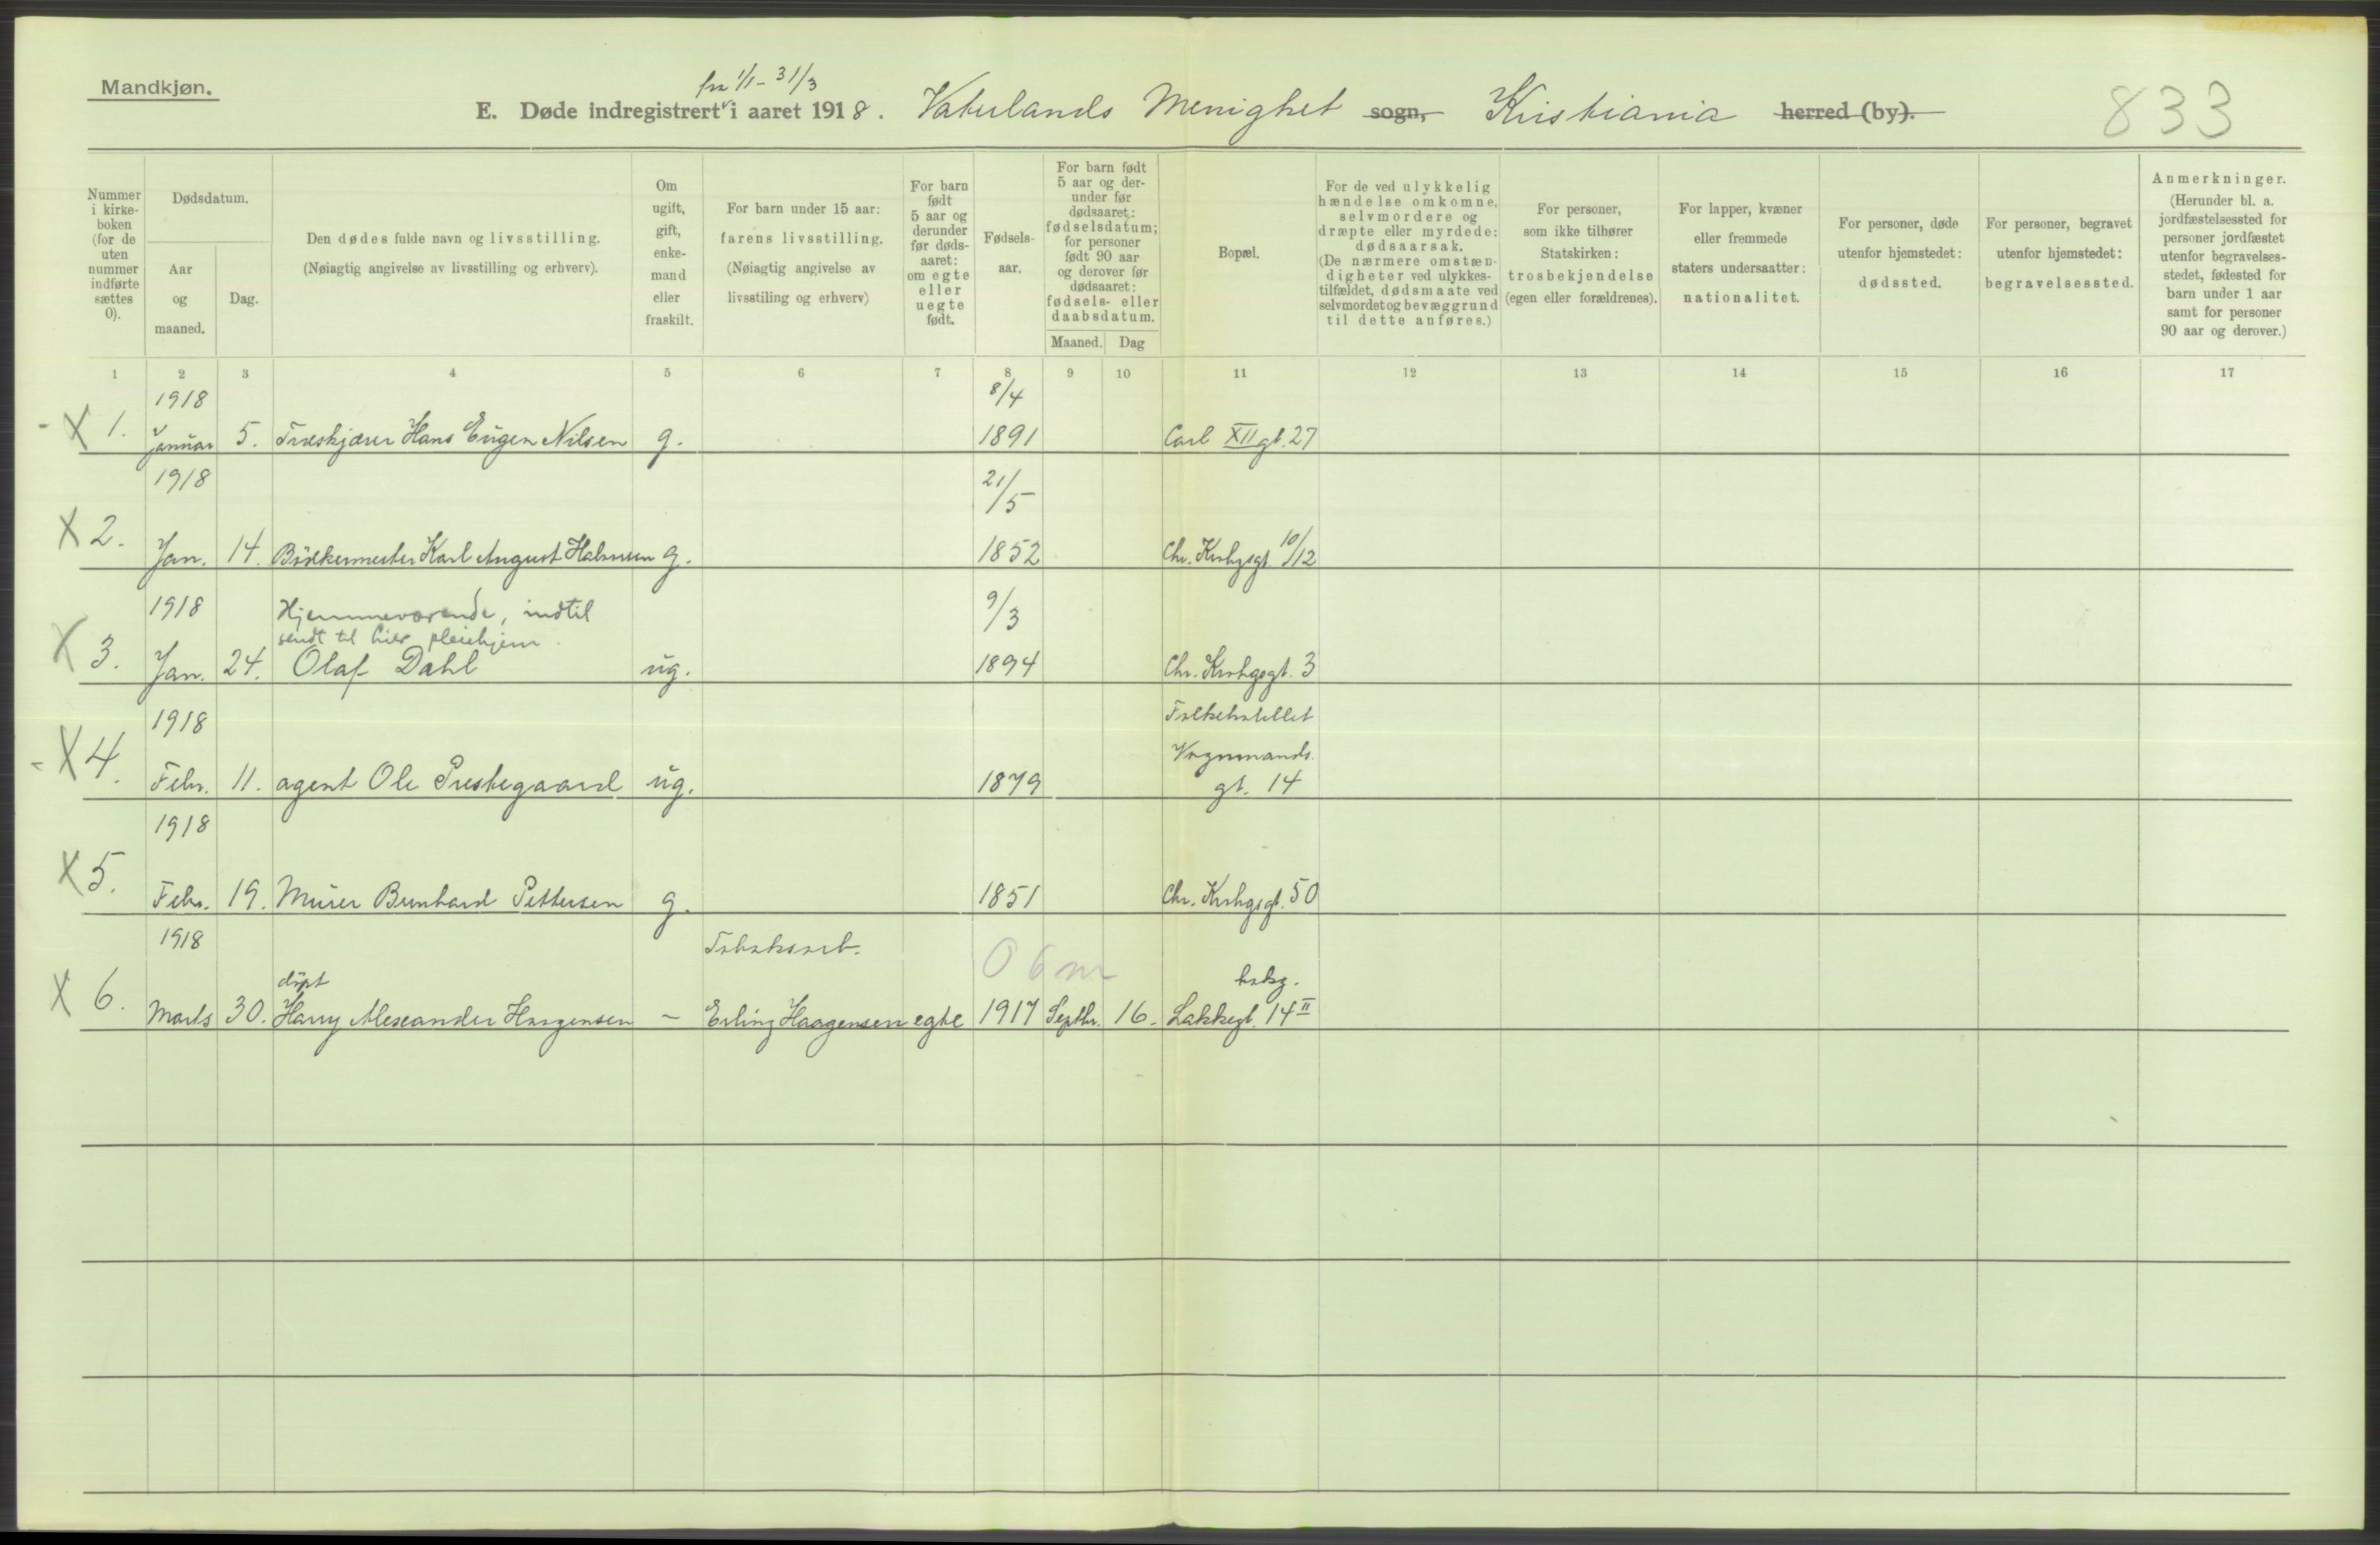 Mandkjøn.
fra 1/1 - 31/3
E. Døde indregistrert i aaret 1918. Vaterlands Menighet sogn, Kristiania herred (by).
833
Nummer i kirke-boken (for de uten nummer indførte sættes 0).
Dødsdatum.
Aar og maaned.
Dag.
Den dødes fulde navn og livsstilling.
(Nøiagtig angivelse av livsstilling og erhverv).
Om ugift, gift, enke-mand eller fraskilt.
For barn under 15 aar: farens livsstilling.
(Nøiagtig angivelse av livsstiling og erhverv)
For barn født 5 aar og derunder før døds-aaret: om egte eller uegte født.
Fødsels-aar.
For barn født 5 aar og der-under før dødsaaret: fødselsdatum; for personer født 90 aar og derover før dødsaaret: fødsels- eller daabsdatum.
Maaned. Dag
Bopæl.
For de ved ulykkelig hændelse omkomne, selvmordere og dræpte eller myrdede: dødsaarsak.
(De nærmere omstæn-digheter ved ulykkes-tilfældet, dødsmaate ved selvmordet og bevæggrund til dette anføres.)
For personer, som ikke tilhører Statskirken: trosbekjendelse (egen eller forældrenes).
For lapper, kvæner eller fremmede staters undersaatter: nationalitet.
For personer, døde utenfor hjemstedet: dødssted.
For personer, begravet utenfor hjemstedet: begravelsessted.
Anmerkninger.
(Herunder bl. a. jordfæstelsessted for personer jordfæstet utenfor begravelses-stedet, fødested for barn under 1 aar samt for personer 90 aar og derover.)
1 2 3 4 5 6 7 8 9 10 11 12 13 14 15 16 17
1918 8/4
X 1. Januar 5. Træskjærer Hans Eugen Nilsen g. 1891 Carl XII gt. 27
1918 21/5
X 2. Jan. 14. Bödkermester Karl August g. 1852 Chr. Krohgsgt. 10/12
1918 Hjemmeværende, indtil 9/3
sendt til pleiehjem.
X 3. Jan. 24. Olaf Dahl ug. 1894 Chr. Krohgsgt. 3
1918 Folkehotellet
Vognmands.
X 4. Febr. 11. agent Ole Prestegaard ug. 1879 gt. 14
1918
X 5. Febr. 19. Murer Bernhard Pettersen g. 1851 Chr. Krohgsgt. 50
1918 Tobaksarb. 0 6 m
döpt
X 6. Marts 30. Harry Alexander Haagensen - Erling Haagensen egte 1917 Septbr. 16. Lakkegt. 14 II